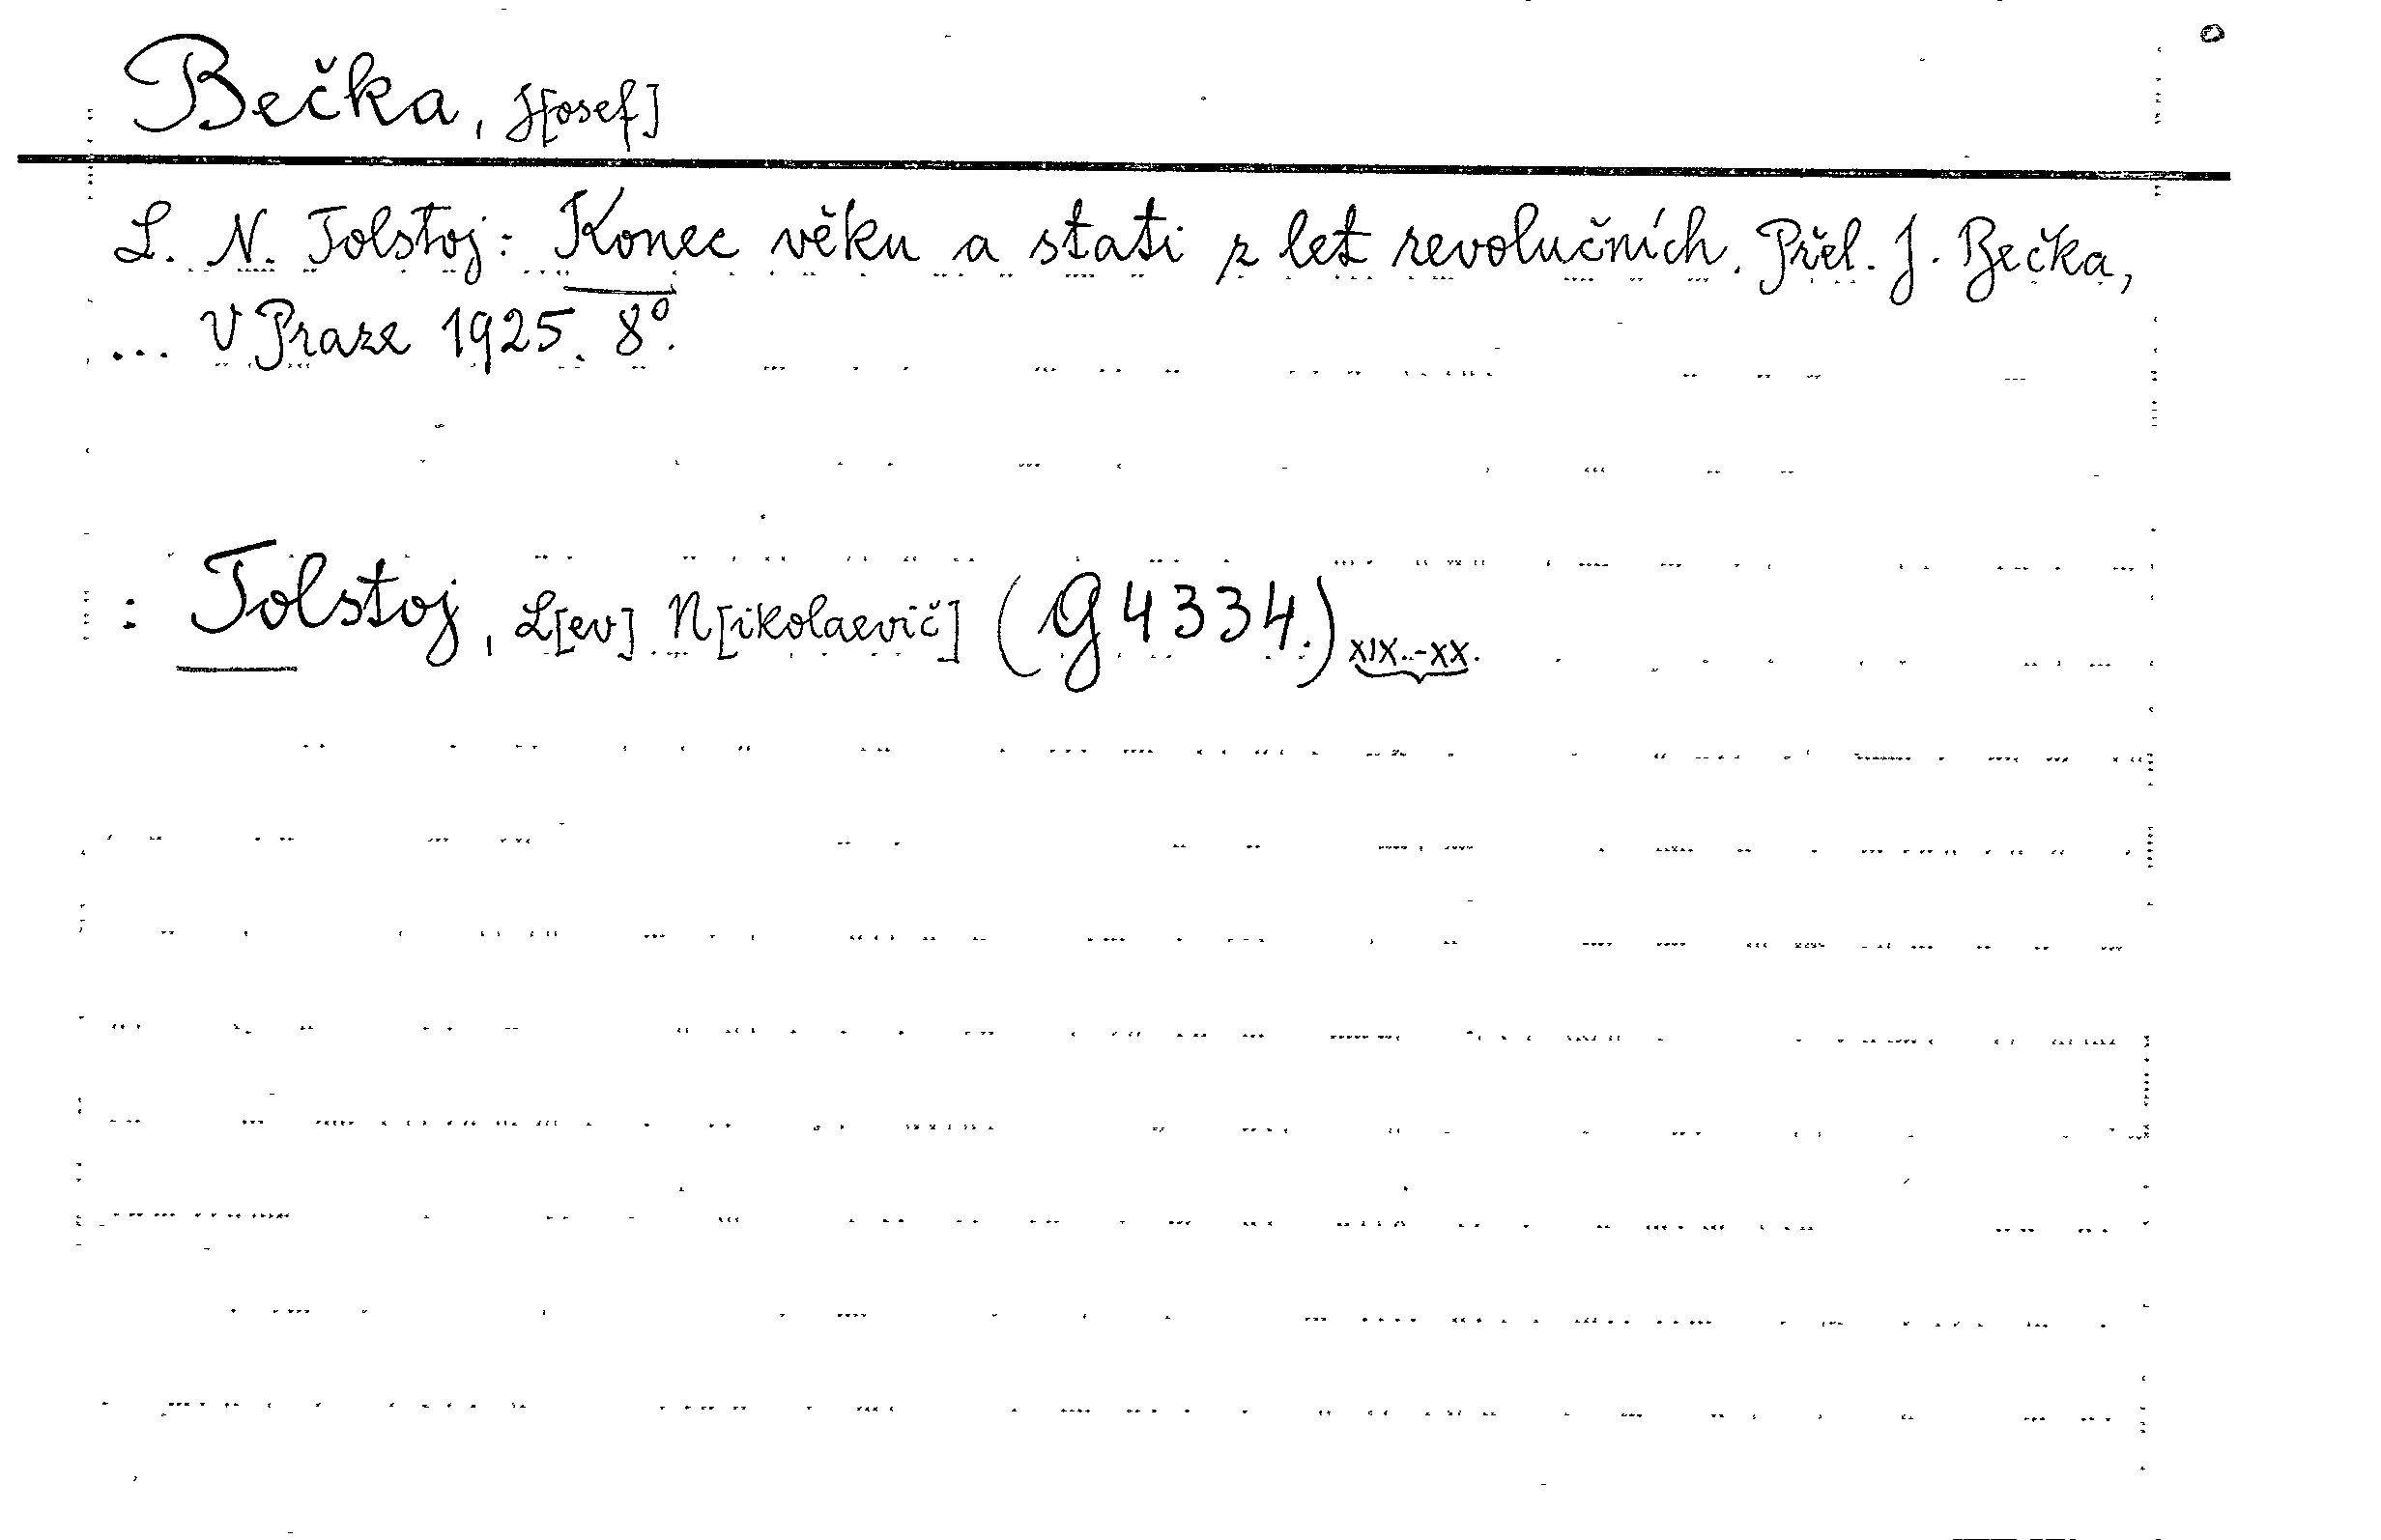 Bečka, J[osef]
L. N. Tolstoj: Konec věku a stati z let revolučních. Přel. J. Bečka,
... V Praze 1925. 8º.
: Tolstoj, L[ev] N[ikolaevič] (G 4334.) XIX.-XX.